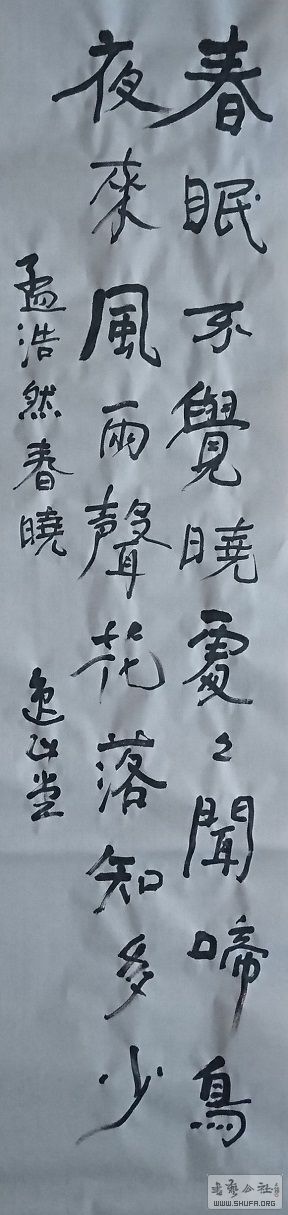 春眠不覺曉處々聞啼鳥
夜來風雨聲花落知多少
孟浩然春曉
逸山堂
书艺公社
WWW.SHUFA.ORG